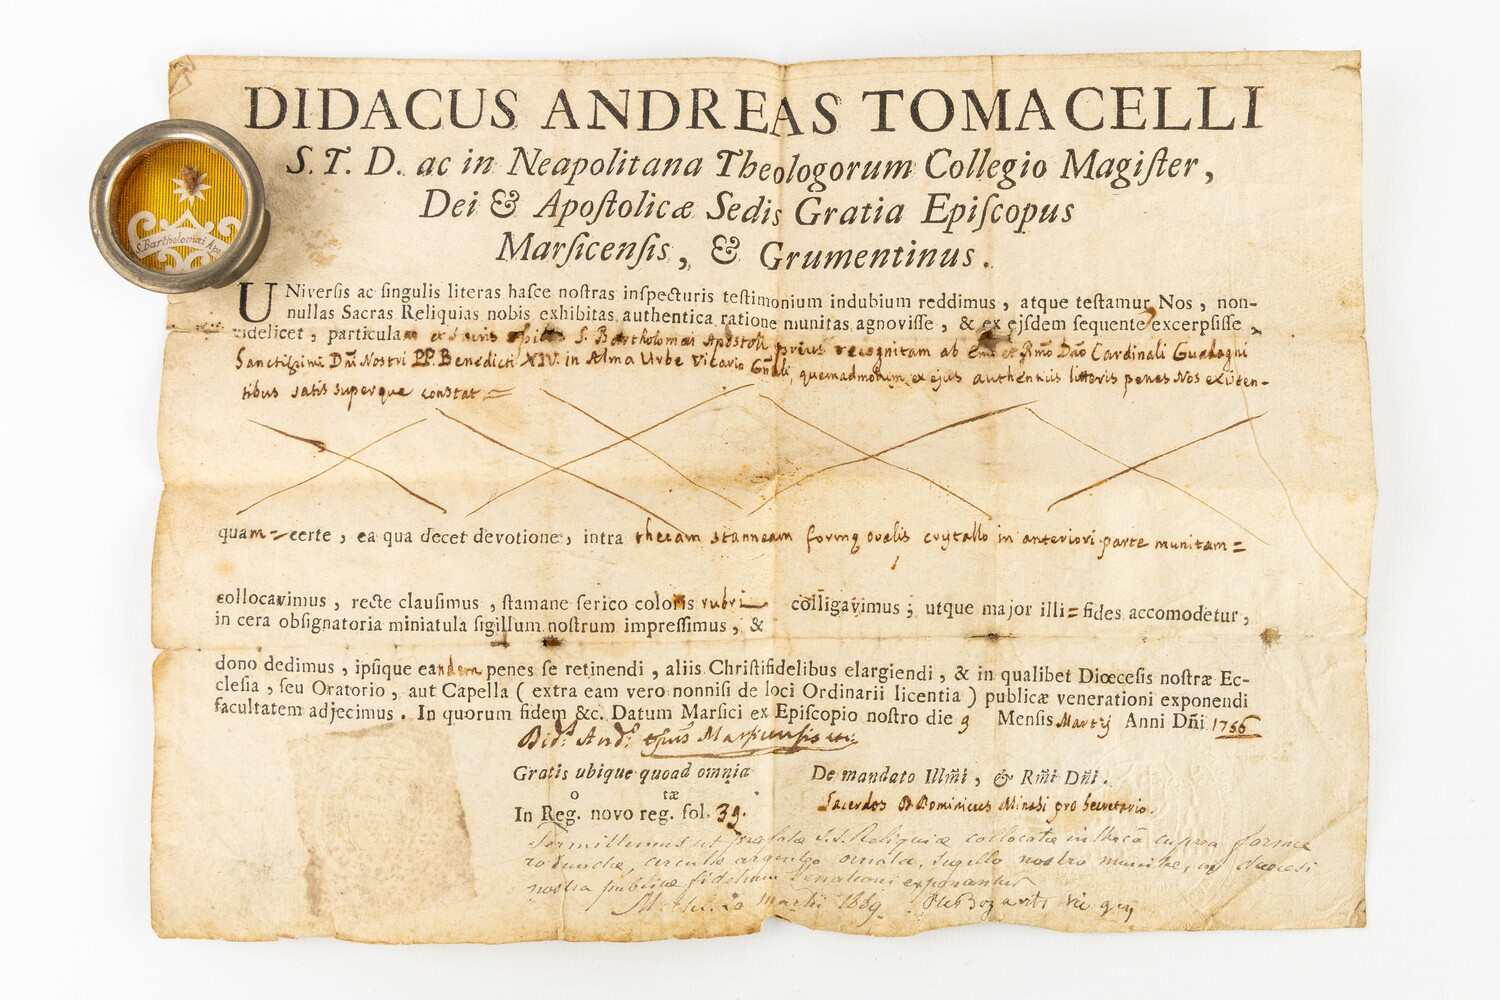 DIDACUS ANDREAS TOMACELLI
S. T. D. ac in Neapolitana Theologorum Collegio Magiſter,
Dei & Apoſtolicæ Sedis Gratia Epiſcopus
Marſicenſis, & Grumentinus.
S. Bartholomæi Apo
UNiverſis ac ſingulis literas haſce noſtras inſpecturis teſtimonium indubium reddimus, atque teſtamur Nos, non-
nullas Sacras Reliquias nobis exhibitas authentica ratione munitas agnoviſſe, & ex ejſdem ſequente excerpſiſſe,
videlicet, particulam S. Bartholomæi Apostoli prius recognitam ab Emo et Rmo Dno Cardinali Guadagni
Sanctissimi Dni Nostri PP. Benedicti XIV. in Alma Urbe Vicario Gñali, quemadmodum ex ejus authenticis litteris penes Nos existen-
tibus satis superque constat =
quam = certe, ea qua decet devotione, intra thecam stanneam formę ovalis crystallo in anteriori parte munitam =
collocavimus, recte clauſimus, ſtamane ſerico coloris rubri colligavimus; utque major illi = fides accomodetur,
in cera obſignatoria miniatula ſigillum noſtrum impreſſimus, &
dono dedimus, ipſique eandem penes ſe retinendi, aliis Chriſtifidelibus elargiendi, & in qualibet Diœceſis noſtræ Ec-
cleſia, ſeu Oratorio, aut Capella ( extra eam vero nonniſi de loci Ordinarii licentia ) publicæ venerationi exponendi
facultatem adjecimus. In quorum fidem &c. Datum Marſici ex Epiſcopio noſtro die 9 Mensis Martij Anni Dñi 1756
Did. And. Epũs Marsicensis
Gratis ubique quoad omnia
De mandato Illm̃i, & Rm̃i Dñi.
o tæ
In Reg. novo reg. fol. 39.
Sacerdos D. Dominicus Minasi pro Secretario.
Permittimus ut præfatæ S.S. Reliquiæ collocatæ in thecâ cuprea formæ
rotundæ, circulo argenteo ornatæ, sigillo nostro munitæ, in diœcesi
nostra publicæ fidelium Venerationi exponantur
20 martii 1889. vic gen